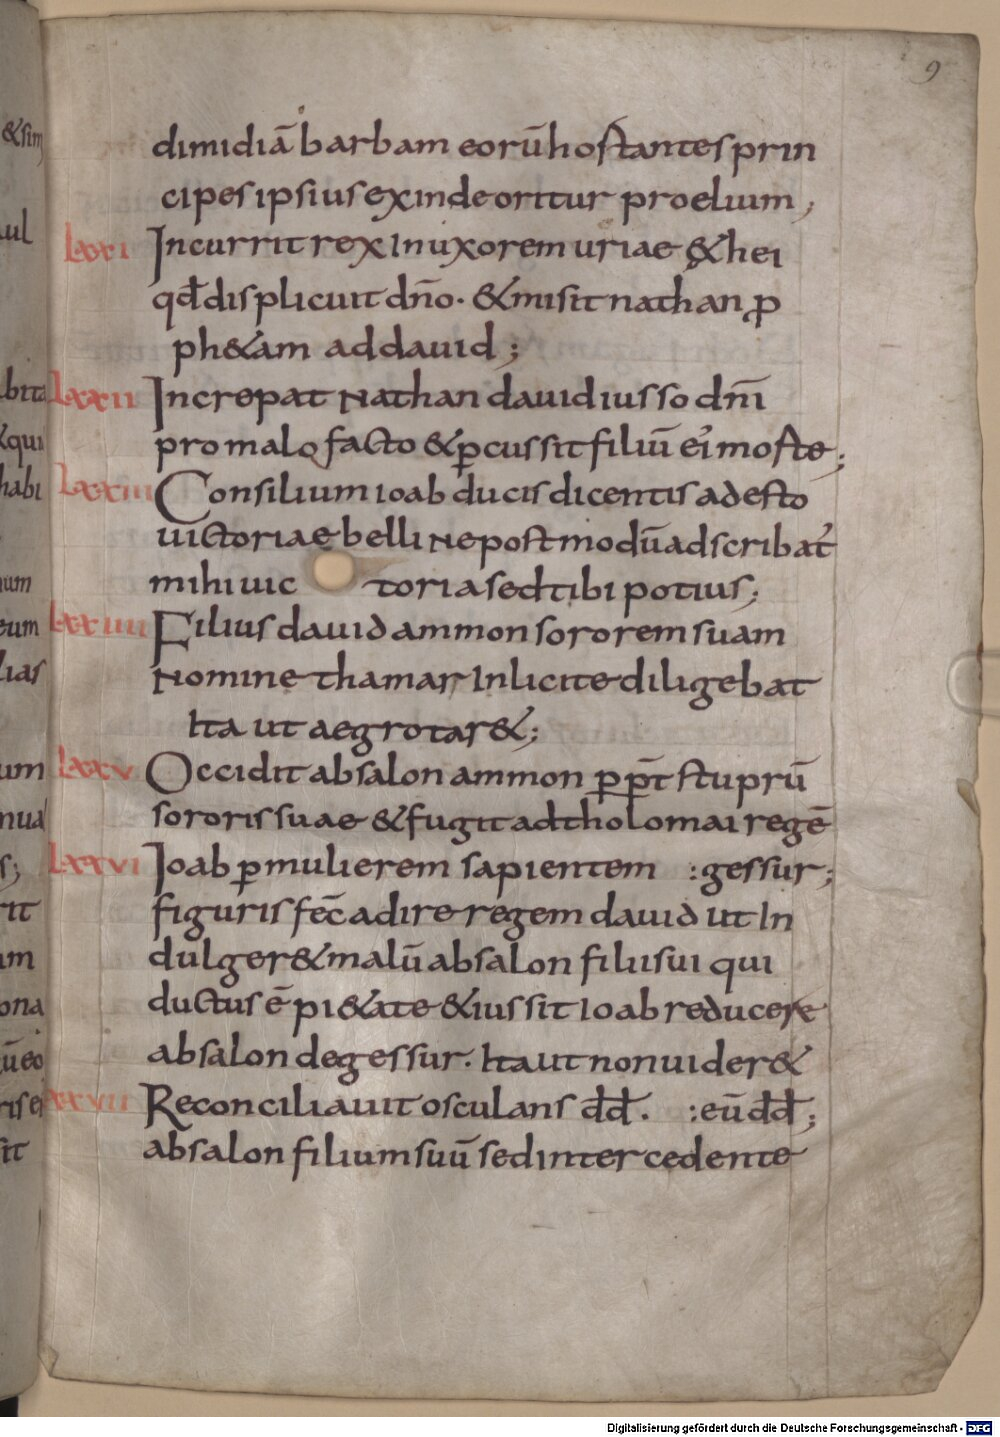 9
dimidiā barbam eorū hostantes prin
cipes ipsius exinde oritur proelium;
Lxxi Incurrit rex In uxorem uriae & hei
qđ displicuit dño. & misit nathan ꝓ
ph&am ad dauid;
Lxxii Increpat Nathan dauid iusso dñi
pro malo facto & ꝑcussit filiū ei' moste;
Lxxiii Consilium ioab ducis dicentis adesto
uictoriae belli Ne postmodū adscribat'
mihi uic toria sed tibi potius;
Lxxiiii Filius dauid ammon sororem suam
Nomine thamar Inlicite diligebat
Ita ut aegrotar&;
Lxxv Occidit absalon ammon ꝑpt̄ stuprū
sororis suae & fugit ad tholomai regē
Lxxvi Ioab ꝑ mulierem sapientem :gessur;
figuris fec̄ adire regem dauid ut In
dulger& malū absalon filii sui qui
ductus ē pi&ate & iussit Ioab reducere
absalon de gessur. Ita ut non uider&
Lxxvii Reconciliauit osculans đđ. :eū đđ;
absalon filium suū sed intercedente
Digitalisierung gefördert durch die Deutsche Forschungsgemeinschaft - DFG